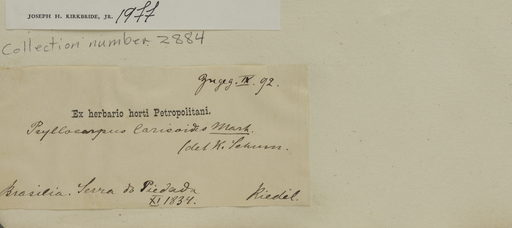 JOSEPH H. KIRKBRIDE, JR. 1977
Collection number 2884
Zugeg. IX. 92.
Ex herbario horti Petropolitani.
Psyllocarpus laricoides Mart.
(det K. Schum.
Brasilia. Serra da Piedada
XI 1834. Riedel.